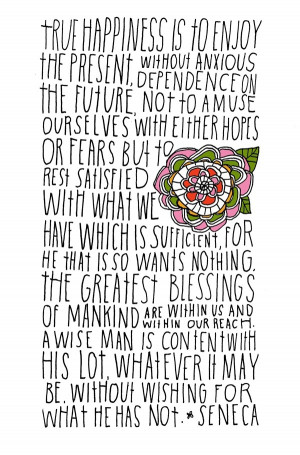 TRUE HAPPINESS IS TO ENJOY
THE PRESENT, WITHOUT ANXIOUS
DEPENDENCE ON
THE FUTURE, NOT TO AMUSE
OURSELVES WITH EITHER HOPES
OR FEARS BUT TO
REST SATISFIED
WITH WHAT WE
HAVE WHICH IS SUFFICIENT, FOR
HE THAT IS SO WANTS NOTHING.
THE GREATEST BLESSINGS
OF MANKIND ARE WITHIN US AND
WITHIN OUR REACH.
A WISE MAN IS CONTENT WITH
HIS LOT, WHATEVER IT MAY
BE, WITHOUT WISHING FOR
WHAT HE HAS NOT. SENECA